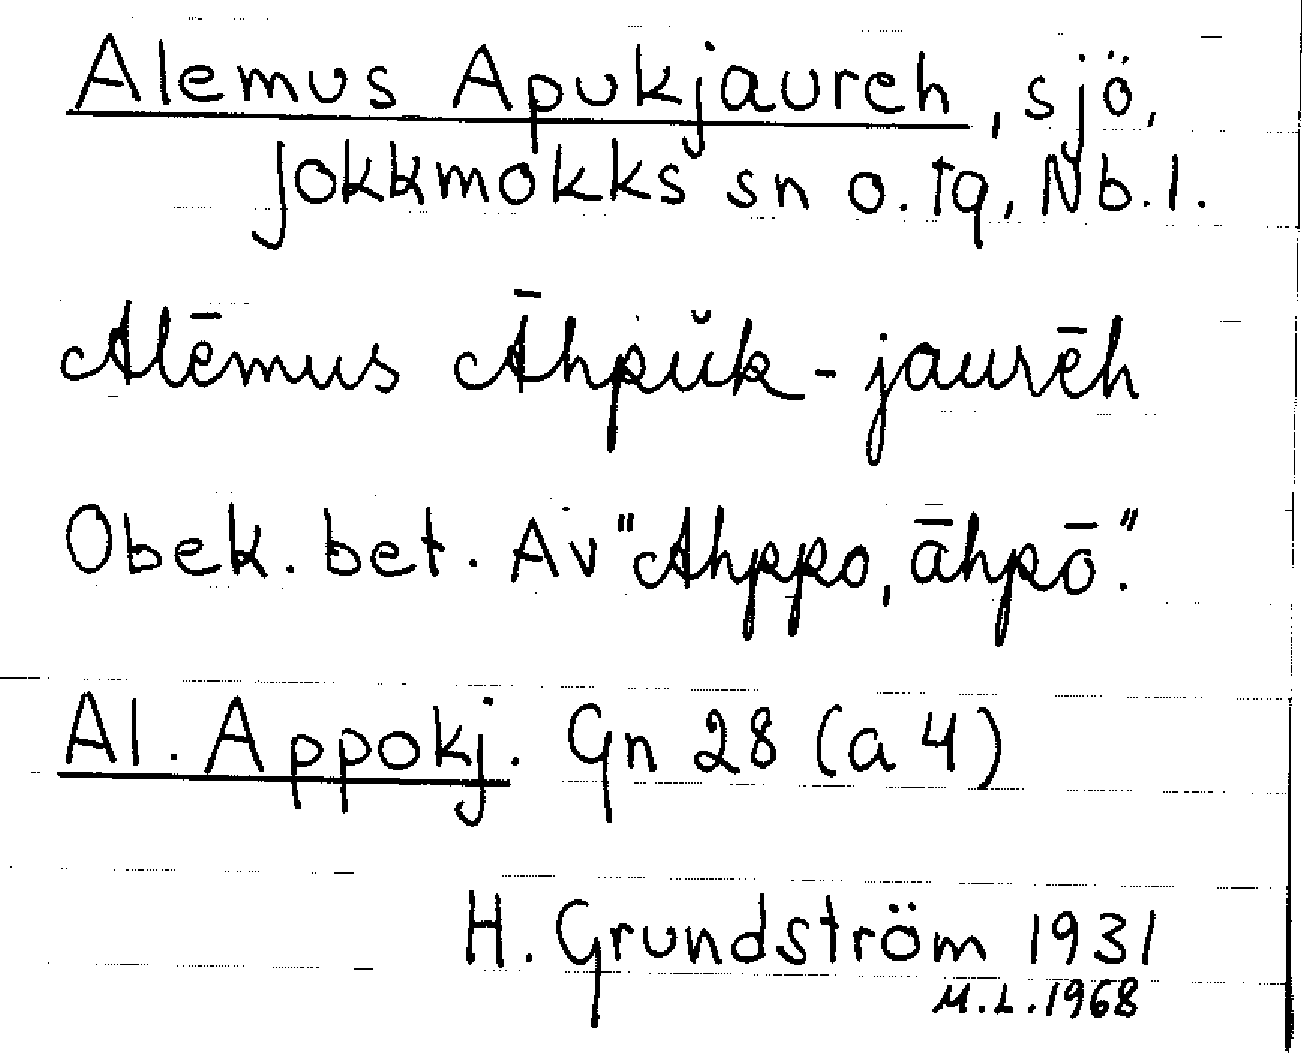 Alemus Apukjaureh, sjö,
Jokkmokks sn o. tg, Nb.l.
Alēmus Āhpŭk-jaurēh
Obek. bet. Av "Ahppo, āhpō".
Al. Appokj. Gn 28 (a 4)
H. Grundström 1931
M.L.1968